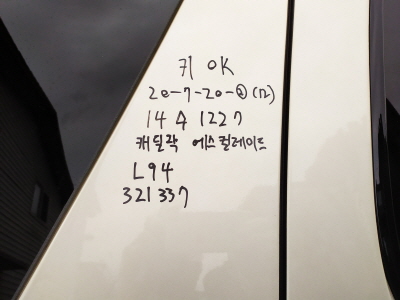 키 OK
20-7-20-②(12)
14 수 1227
캐딜락 에스컬레이드
L94
321337